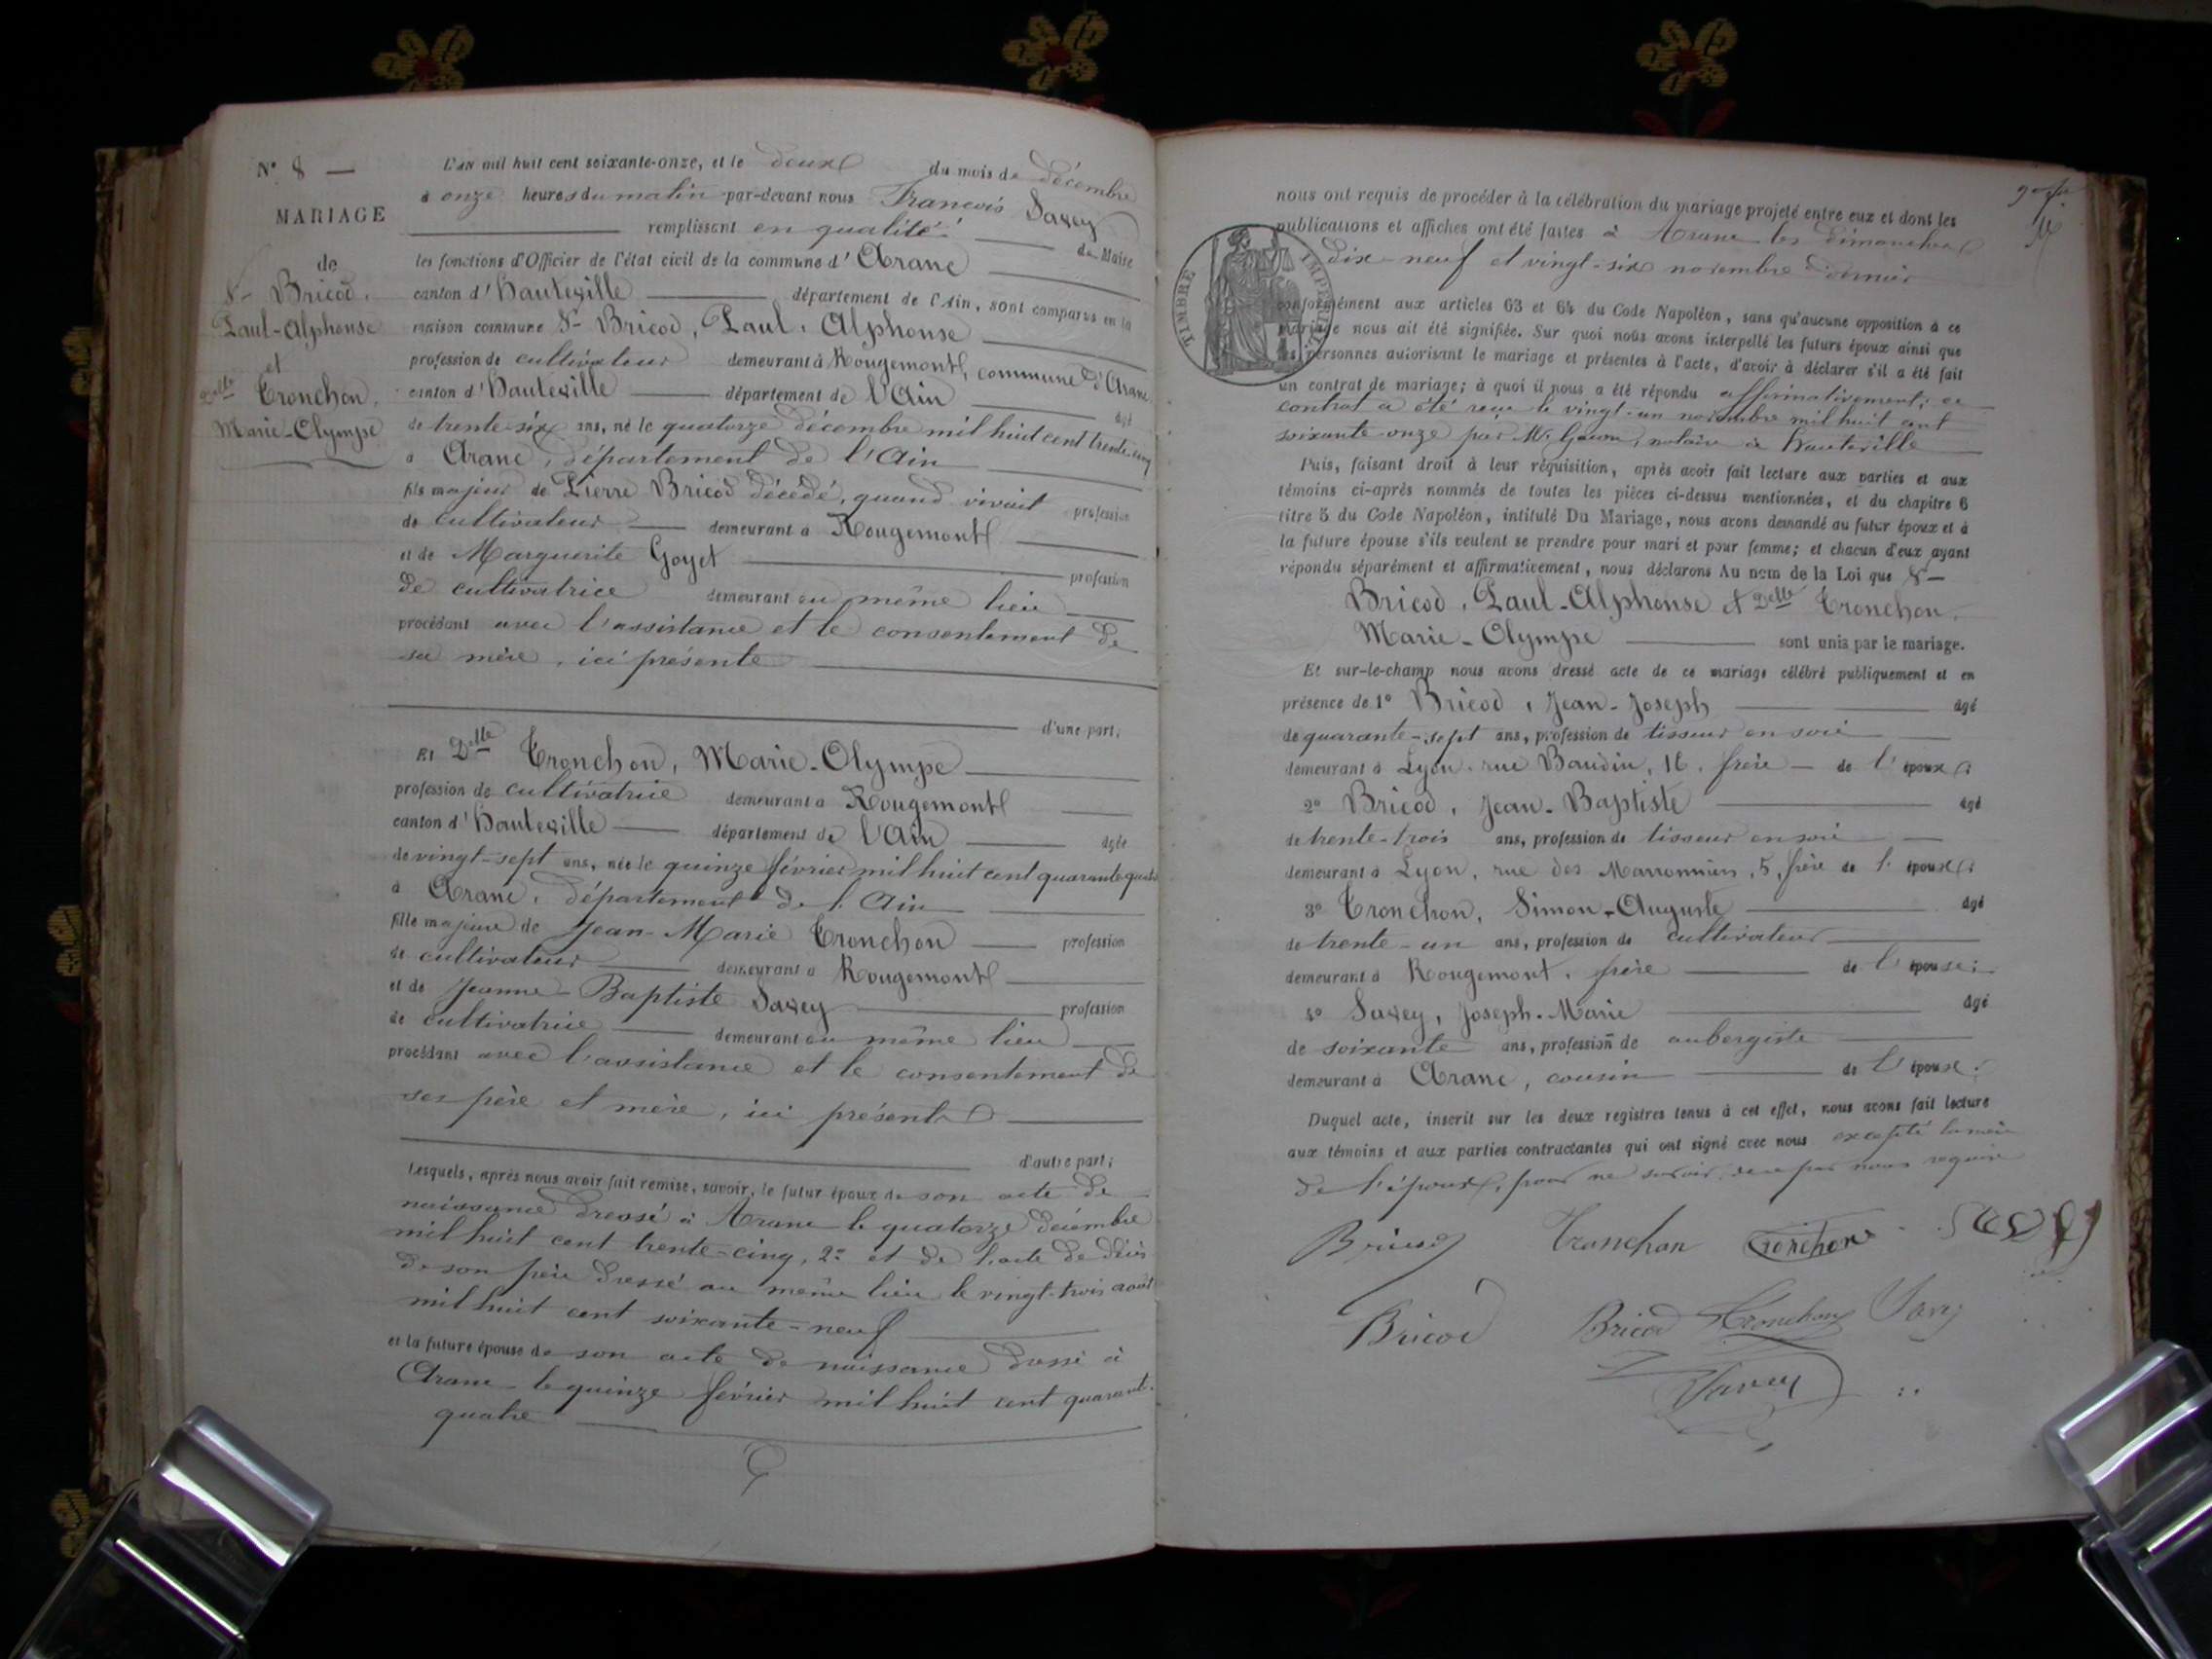 N° 8 —
MARIAGE
de
Sr Bricod,
Paul-Alphonse
et
Delle Tronchon,
Marie-Olympe
L'AN mil huit cent soixante-onze, et le deux du mois de décembre
à onze heures du matin par-devant nous François Savey
remplissant en qualité de Maire
les fonctions d'Officier de l'état civil de la commune d'Aranc
canton d'Hauteville département de l'Ain, sont comparus en la
maison commune Sr Bricod, Paul-Alphonse
profession de cultivateur demeurant à Rougemont, commune d'Aranc
canton d'Hauteville département de l'Ain âgé
de trente-six ans, né le quatorze décembre mil huit cent trente-cinq
à Aranc, département de l'Ain
fils majeur de Pierre Bricod décédé, quand vivait profession
de cultivateur demeurant à Rougemont
et de Marguerite Goyet profession
de cultivatrice demeurant au même lieu
procédant avec l'assistance et le consentement de
sa mère, ici présente
d'une part;
Et Delle Tronchon, Marie-Olympe
profession de cultivatrice demeurant à Rougemont
canton d'Hauteville département de l'Ain âgée
de vingt-sept ans, née le quinze février mil huit cent quarante-quatre
à Aranc, département de l'Ain
fille majeure de Jean-Marie Tronchon profession
de cultivateur demeurant à Rougemont
et de Jeanne-Baptiste Savey profession
de cultivatrice demeurant au même lieu
procédant avec l'assistance et le consentement de
ses père et mère, ici présents
d'autre part;
Lesquels, après nous avoir fait remise, savoir, le futur époux de son acte de
naissance dressé à Aranc le quatorze décembre
mil huit cent trente-cinq, 2° et de l'acte de décès
de son père dressé au même lieu le vingt-trois août
mil huit cent soixante-neuf
et la future épouse de son acte de naissance dressé à
Aranc le quinze février mil huit cent quarante-
quatre
nous ont requis de procéder à la célébration du mariage projeté entre eux et dont les
publications et affiches ont été faites à Aranc les dimanches
dix-neuf et vingt-six novembre dernier
TIMBRE IMPERIAL
conformément aux articles 63 et 64 du Code Napoléon, sans qu'aucune opposition à ce
mariage nous ait été signifiée. Sur quoi nous avons interpellé les futurs époux ainsi que
les personnes autorisant le mariage et présentes à l'acte, d'avoir à déclarer s'il a été fait
un contrat de mariage; à quoi il nous a été répondu affirmativement; ce
contrat a été reçu le vingt-un novembre mil huit cent
soixante-onze par Me notaire à Hauteville
Puis, faisant droit à leur réquisition, après avoir fait lecture aux parties et aux
témoins ci-après nommés de toutes les pièces ci-dessus mentionnées, et du chapitre 6
titre 5 du Code Napoléon, intitulé Du Mariage, nous avons demandé au futur époux et à
la future épouse s'ils veulent se prendre pour mari et pour femme; et chacun d'eux ayant
répondu séparément et affirmativement, nous déclarons Au nom de la Loi que Sr
Bricod, Paul-Alphonse et Delle Tronchon,
Marie-Olympe sont unis par le mariage.
Et sur-le-champ nous avons dressé acte de ce mariage célébré publiquement et en
présence de 1° Bricod, Jean-Joseph âgé
de quarante-sept ans, profession de tisseur en soie
demeurant à Lyon, rue Baudin, 16, frère de l'époux;
2° Bricod, Jean-Baptiste âgé
de trente-trois ans, profession de tisseur en soie
demeurant à Lyon, rue des Marronniers, 5, frère de l'époux;
3° Tronchon, Simon-Auguste âgé
de trente-un ans, profession de cultivateur
demeurant à Rougemont, frère de l'épouse;
4° Savey, Joseph-Marie âgé
de soixante ans, profession de aubergiste
demeurant à Aranc, cousin de l'épouse.
Duquel acte, inscrit sur les deux registres tenus à cet effet, nous avons fait lecture
aux témoins et aux parties contractantes qui ont signé avec nous excepté la mère
de l'époux, pour ne savoir, de ce par nous requise
Bricod Tronchon Tronchon Savey
Bricod Bricod Tronchon Savey
Savey